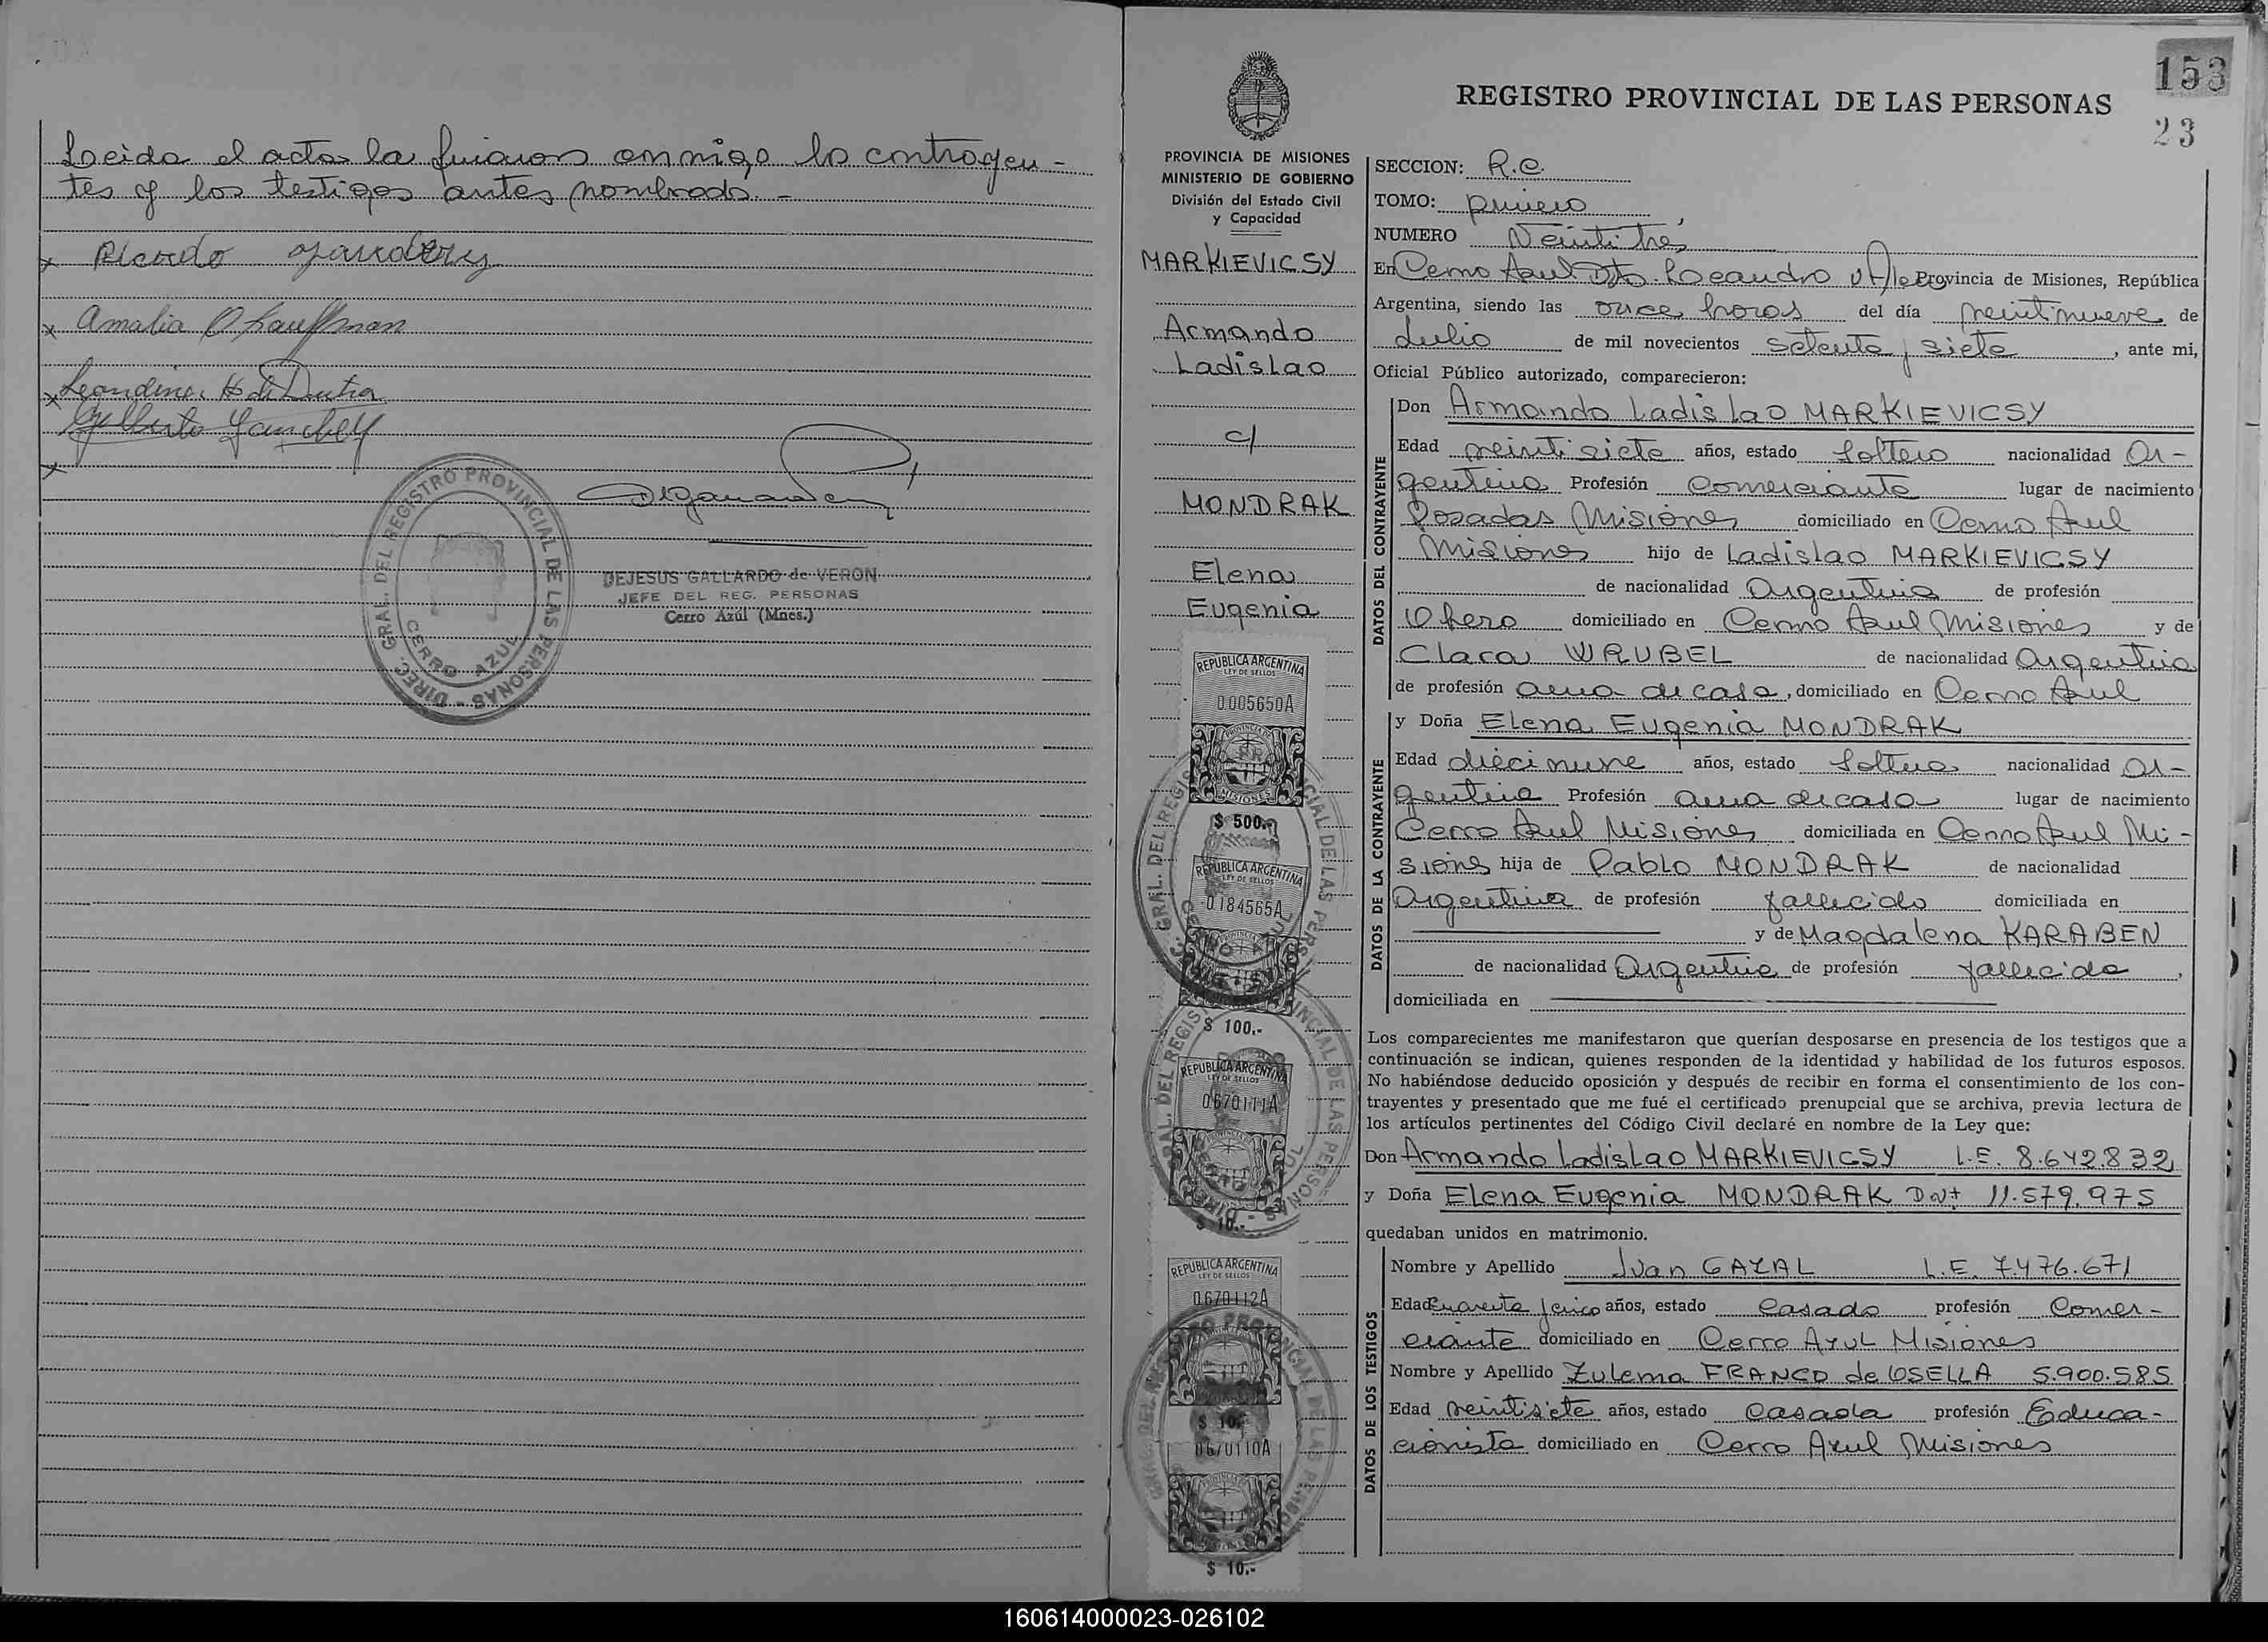 Leida el acta la firmaron conmigo lo contrayen-
tes y los testigos antes nombrado.-
x Ricardo
x Amalia O Kauffman
x Leondina H de Dutra
Gilberto Sanchez
x
DIREC. GRAL. DEL REGISTRO PROVINCIAL DE LAS PERSONAS -
CERRO AZUL
DEJESUS GALLARDO de VERON
JEFE DEL REG. PERSONAS
Cerro Azúl (Mnes.)
153
REGISTRO PROVINCIAL DE LAS PERSONAS
23
PROVINCIA DE MISIONES
MINISTERIO DE GOBIERNO
División del Estado Civil
y Capacidad
MARKIEVICSY
Armando
Ladislao
c/
MONDRAK
Elena
Eugenia
REPUBLICA ARGENTINA
LEY DE SELLOS
0005650A
MISIONES
$ 500.-
REPUBLICA ARGENTINA
LEY DE SELLOS
0184565A
$ 100.-
REPUBLICA ARGENTINA
LEY DE SELLOS
0670111A
$ 10.-
REPUBLICA ARGENTINA
LEY DE SELLOS
0670112A
$ 10.-
0670110A
$ 10.-
SECCION: R.C.
TOMO: primero
NUMERO Veintitrés
En Cerro Azul Dto. Leandro N Alem Provincia de Misiones, República
Argentina, siendo las once horas del día veintinueve de
Julio de mil novecientos setenta y siete, ante mi,
Oficial Público autorizado, comparecieron:
DATOS DEL CONTRAYENTE
Don Armando Ladislao MARKIEVICSY
Edad veintisiete años, estado Soltero nacionalidad Ar-
gentina Profesión Comerciante lugar de nacimiento
Posadas Misiones domiciliado en Cerro Azul
Misiones hijo de Ladislao MARKIEVICSY
de nacionalidad Argentina de profesión
Obrero domiciliado en Cerro Azul Misiones y de
Clara WRUBEL de nacionalidad Argentina
de profesión ama de casa, domiciliado en Cerro Azul
DATOS DE LA CONTRAYENTE
y Doña Elena Eugenia MONDRAK
Edad diecinueve años, estado Soltera nacionalidad Ar-
gentina Profesión ama de casa lugar de nacimiento
Cerro Azul Misiones domiciliada en Cerro Azul Mi-
siones hija de Pablo MONDRAK de nacionalidad
Argentina de profesión fallecido domiciliada en
y de Magdalena KARABEN
de nacionalidad Argentina de profesión fallecida,
domiciliada en
Los comparecientes me manifestaron que querían desposarse en presencia de los testigos que a
continuación se indican, quienes responden de la identidad y habilidad de los futuros esposos.
No habiéndose deducido oposición y después de recibir en forma el consentimiento de los con-
trayentes y presentado que me fué el certificado prenupcial que se archiva, previa lectura de
los artículos pertinentes del Código Civil declaré en nombre de la Ley que:
Don Armando Ladislao MARKIEVICSY L.E. 8.642.832
y Doña Elena Eugenia MONDRAK DNI 11.579.975
quedaban unidos en matrimonio.
DATOS DE LOS TESTIGOS
Nombre y Apellido Juan GAZAL L.E. 7.476.671
Edad cuarenta y cinco años, estado Casado profesión Comer-
ciante domiciliado en Cerro Azul Misiones
Nombre y Apellido Zulema FRANCO de OSELLA 5.900.585
Edad veintisiete años, estado Casada profesión Educa-
cionista domiciliado en Cerro Azul Misiones
160614000023-026102